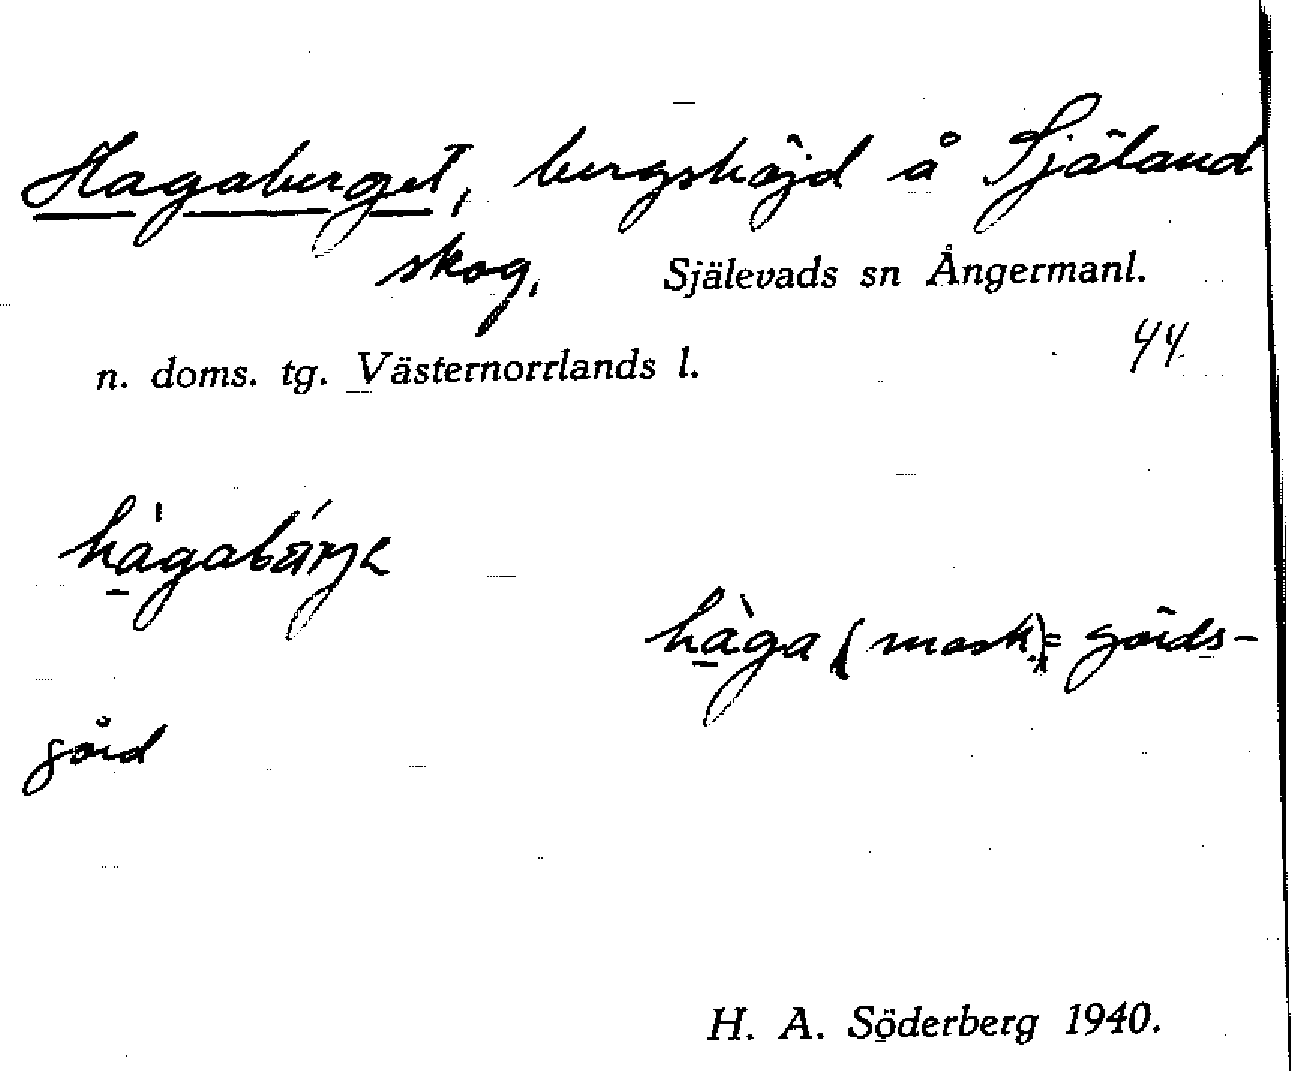 Hagaberget, bergshöjd å Själand
skog, Själevads sn Ångermanl.
n. doms. tg. Västernorrlands l. 44
hàgabárjɛ
hàga (mask) = gärds-
gård
H. A. Söderberg 1940.